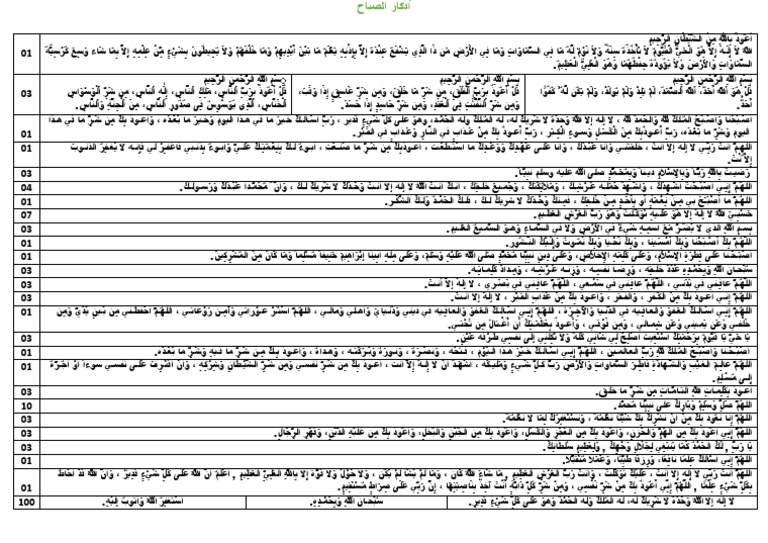 أذكار الصباح
أَعُوذُ بِاللهِ مِنْ الشَّيْطَانِ الرَّجِيمِ
اللهُ لاَ إِلَهَ إِلاَّ هُوَ الْحَيُّ الْقَيُّومُ لاَ تَأْخُذُهُ سِنَةٌ وَلاَ نَوْمٌ لَّهُ مَا فِي السَّمَاوَاتِ وَمَا فِي الأَرْضِ مَن ذَا الَّذِي يَشْفَعُ عِنْدَهُ إِلاَّ بِإِذْنِهِ يَعْلَمُ مَا بَيْنَ أَيْدِيهِمْ وَمَا خَلْفَهُمْ وَلاَ يُحِيطُونَ بِشَيْءٍ مِّنْ عِلْمِهِ إِلاَّ بِمَا شَاء وَسِعَ كُرْسِيُّهُ
السَّمَاوَاتِ وَالأَرْضَ وَلاَ يَؤُودُهُ حِفْظُهُمَا وَهُوَ الْعَلِيُّ الْعَظِيمُ. 01
بِسْمِ اللهِ الرَّحْمنِ الرَّحِيمِ
قُلْ هُوَ اللهُ أَحَدٌ، اللهُ الصَّمَدُ، لَمْ يَلِدْ وَلَمْ يُولَدْ، وَلَمْ يَكُن لَّهُ كُفُوًا
أَحَدٌ.
بِسْمِ اللهِ الرَّحْمنِ الرَّحِيمِ
قُلْ أَعُوذُ بِرَبِّ الْفَلَقِ، مِن شَرِّ مَا خَلَقَ، وَمِن شَرِّ غَاسِقٍ إِذَا وَقَبَ،
وَمِن شَرِّ النَّفَّاثَاتِ فِي الْعُقَدِ، وَمِن شَرِّ حَاسِدٍ إِذَا حَسَدَ.
بِسْمِ اللهِ الرَّحْمنِ الرَّحِيمِ
قُلْ أَعُوذُ بِرَبِّ النَّاسِ، مَلِكِ النَّاسِ، إِلَهِ النَّاسِ، مِن شَرِّ الْوَسْوَاسِ
الْخَنَّاسِ، الَّذِي يُوَسْوِسُ فِي صُدُورِ النَّاسِ، مِنَ الْجِنَّةِ وَالنَّاسِ.
03
أَصْبَحْنَا وَأَصْبَحَ الْمُلْكُ لله وَالْحَمْدُ لله ، لا إلهَ إلا اللهُ وَحْدَهُ لا شَرِيكَ لهُ، لهُ المُلْكُ ولهُ الحَمْدُ، وهوَ على كُلِّ شيءٍ قدير، رَبِّ أسْألُكَ خَيرَ ما في هذا اليوم وخَيرَ ما بَعْدَهُ، وأعوذُ بِكَ مِنْ شَرِّ ما في هذا
اليوم وَشَرِّ ما بَعْدَهُ، رَبِّ أعوذُ بِكَ مِنَ الْكَسَلِ وَسوءِ الْكِبَرِ ، رَبِّ أعوذُ بِكَ مِنْ عَذابٍ في النَّارِ وَعَذابٍ في القَبْرِ. 01
اللهُمَّ أنْتَ رَبِّي لا إلهَ إلا أنْتَ ، خَلَقْتَني وأنا عَبْدُكَ ، وأنا على عَهْدِكَ وَوَعْدِكَ ما اسْتَطَعْتُ ، أعوذُ بِكَ مِنْ شَرِّ ما صَنَعْتُ ، أبوءُ لكَ بِنِعْمَتِكَ عليَّ وأبوءُ بِذَنْبي فاغْفِرْ لي فإنه لا يَغْفِرُ الذنوبَ
إلا أنْتَ. 01
رَضيتُ باللهِ رَبًّا وبالإسلامِ دينًا وبِمُحَمَّدٍ صلى الله عليه وسلم نَبِيًّا. 03
اللهُمَّ إني أصْبَحْتُ أُشْهِدُكَ ، وأُشْهِدُ حَمَلَةَ عَرْشِكَ ، وَمَلائِكَتَكَ ، وَجَميعَ خَلْقِكَ ، أنكَ أنتَ اللهُ لا إلهَ إلا أنتَ وَحْدَكَ لا شَريكَ لكَ ، وأنَّ مُحَمَّداً عَبْدُكَ وَرَسولُكَ. 04
اللهُمَّ ما أصْبَحَ بي مِنْ نِعْمَةٍ أو بِأَحَدٍ مِنْ خَلْقِكَ ، فَمِنْكَ وَحْدَكَ لا شريكَ لكَ ، فَلَكَ الحَمْدُ وَلَكَ الشُّكْر. 01
حَسْبِيَ اللهُ لا إلهَ إلا هُوَ عَلَيهِ تَوَكَّلْتُ وَهُوَ رَبُّ العَرْشِ العَظيم. 07
بِسمِ اللهِ الذي لا يَضُرُّ مَعَ اسمِهِ شَيءٌ في الأرْضِ وَلا في السَّماءِ وَهوَ السَّميعُ العَليم. 03
اللهُمَّ بِكَ أصْبَحْنا وَبِكَ أمْسَيْنا ، وَبِكَ نَحْيا وَبِكَ نَموتُ وإلَيْكَ النُّشور. 01
أصْبَحْنا على فِطْرَةِ الإسْلامِ، وَعَلى كَلِمَةِ الإخْلاصِ، وَعَلى دينِ نَبِيِّنا مُحَمَّدٍ صلى اللهُ عَليْهِ وسلم، وَعَلى مِلَّةِ أبينا إبْراهيمَ حَنيفاً مُسْلِماً وَما كانَ مِنَ المُشْرِكين. 01
سُبْحانَ اللهِ وَبِحَمْدِهِ عَدَدَ خَلْقِه ، وَرِضا نَفْسِه ، وَزِنَةَ عَرْشِه ، وَمِدادَ كَلِماتِه. 03
اللهُمَّ عافِني في بَدَني ، اللهُمَّ عافِني في سَمْعي ، اللهُمَّ عافِني في بَصَري ، لا إلهَ إلا أنتَ. 03
اللهُمَّ إني أعوذُ بِكَ مِنَ الكُفْرِ ، والفَقْرِ ، وأعوذُ بِكَ مِنْ عَذابِ القَبْرِ ، لا إلهَ إلا أنتَ. 03
اللهُمَّ إني أسْألُكَ العَفْوَ والعافِيَةَ في الدُّنيا والآخِرَة ، اللهُمَّ إني أسْألُكَ العَفْوَ والعافِيَةَ في ديني ودُنْيايَ وأهْلي ومالي ، اللهُمَّ اسْتُرْ عَوْراتي وآمِنْ رَوْعاتي ، اللهُمَّ احْفَظْني مِن بَينِ يَدَيَّ ومِنْ
خَلْفي وعَنْ يَميني وعَنْ شِمالي ، ومِنْ فَوْقي ، وأعوذُ بِعَظَمَتِكَ أنْ أُغْتالَ مِنْ تَحْتي. 01
يا حَيُّ يا قَيُّومُ بِرَحْمَتِكَ أسْتَغيثُ أصْلِحْ لي شَأني كُلَّهُ وَلا تَكِلْني إلى نَفْسي طَرْفَةَ عَيْن. 03
أصْبَحْنا وأصْبَحَ المُلْكُ لله رَبِّ العالمين ، اللهُمَّ إني أسْألُكَ خَيرَ هذا اليَوْم ، فَتْحَه ، وَنَصْرَه ، وَنورَهُ وَبَرَكَتَه ، وَهُداهُ ، وأعوذُ بِكَ مِنْ شَرِّ ما فيهِ وَشَرِّ ما بَعْدَه. 01
اللهُمَّ عالِمَ الغَيْبِ والشَّهادَةِ فاطِرَ السَّماواتِ والأرْضِ رَبَّ كُلِّ شَيءٍ وَمَليكَه ، أشْهَدُ أنْ لا إلهَ إلا أنْتَ ، أعوذُ بِكَ مِنْ شَرِّ نَفْسي ومِنْ شَرِّ الشَّيْطانِ وَشِرْكِه ، وأنْ أقْتَرِفَ على نَفْسي سوءاً أو أجُرَّهُ
إلى مُسْلِم. 01
أعوذُ بِكَلِماتِ اللهِ التَّامَّاتِ مِنْ شَرِّ ما خَلَق. 03
اللهُمَّ صَلِّ وَسَلِّمْ وَبارِكْ على نَبِيِّنا مُحَمَّد. 10
اللهُمَّ إنا نَعوذُ بِكَ مِنْ أنْ نُشْرِكَ بِكَ شَيْئاً نَعْلَمُه ، وَنَسْتَغْفِرُكَ لِما لا نَعْلَمُه. 03
اللهُمَّ إني أعوذُ بِكَ مِنَ الهَمِّ والحَزَنِ، وأعوذُ بِكَ مِنَ العَجْزِ والكَسَلِ، وأعوذُ بِكَ مِنَ الجُبْنِ والبُخْلِ، وأعوذُ بِكَ مِنْ غَلَبَةِ الدَّيْنِ، وَقَهْرِ الرِّجال. 03
يا رَبِّ ، لَكَ الحَمْدُ كَما يَنْبَغي لِجَلالِ وَجْهِكَ ، وَلِعَظيمِ سُلْطانِك. 03
اللهُمَّ إني أسْألُكَ عِلْماً نافِعاً، وَرِزْقاً طَيِّباً، وَعَمَلاً مُتَقَبَّلاً. 01
اللهُمَّ أنْتَ رَبِّي لا إلهَ إلا أنْتَ ، عَلَيْكَ تَوَكَّلْتُ ، وأنْتَ رَبُّ العَرْشِ العَظيم , ما شاءَ اللهُ كان ، وما لم يَشَأ لم يَكُن ، ولا حَوْلَ ولا قُوَّةَ إلا باللهِ العَليِّ العَظيم , أعْلَمُ أنَّ اللهَ على كُلِّ شَيءٍ قَدير ، وأنَّ اللهَ قد أحاطَ
بكُلِّ شَيءٍ عِلْماً , اللهُمَّ إني أعوذُ بِكَ مِنْ شَرِّ نَفْسي ، ومِنْ شَرِّ كُلِّ دابَّةٍ أنْتَ آخِذٌ بِناصِيَتِها ، إنَّ رَبِّي على صِراطٍ مُسْتَقيم. 01
لا إلهَ إلا اللهُ وَحْدَهُ لا شَريكَ له، لهُ المُلْكُ ولهُ الحَمْدُ وهوَ على كُلِّ شَيءٍ قَدير.
سُبْحانَ اللهِ وَبِحَمْدِهِ.
أسْتَغْفِرُ اللهَ وأتوبُ إلَيْهِ.
100